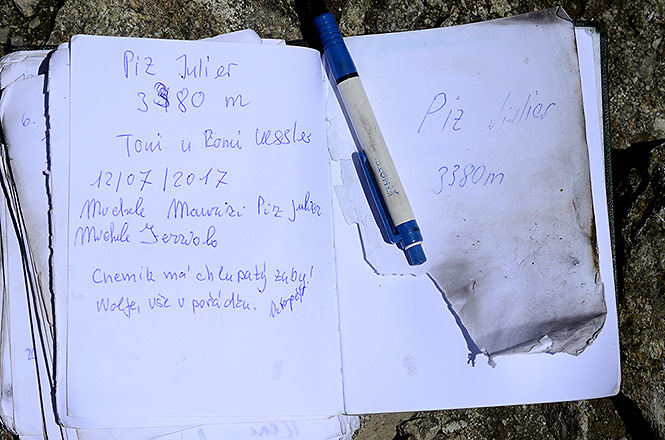 Piz Julier
3380 m
Toni u Romi Kessler
12/07/2017
Michele Maurizi Piz Julier
Michele
Chemik má chlupatý zuby!
Wolfe, vše v pořádku.
Piz Julier
3380m
6.